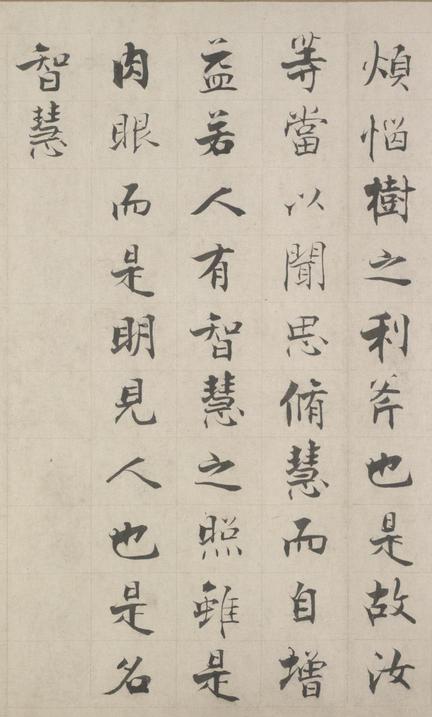 煩惱樹之利斧也是故汝
等當以聞思脩慧而自增
益若人有智慧之照雖是
肉眼而是明見人也是名
智慧